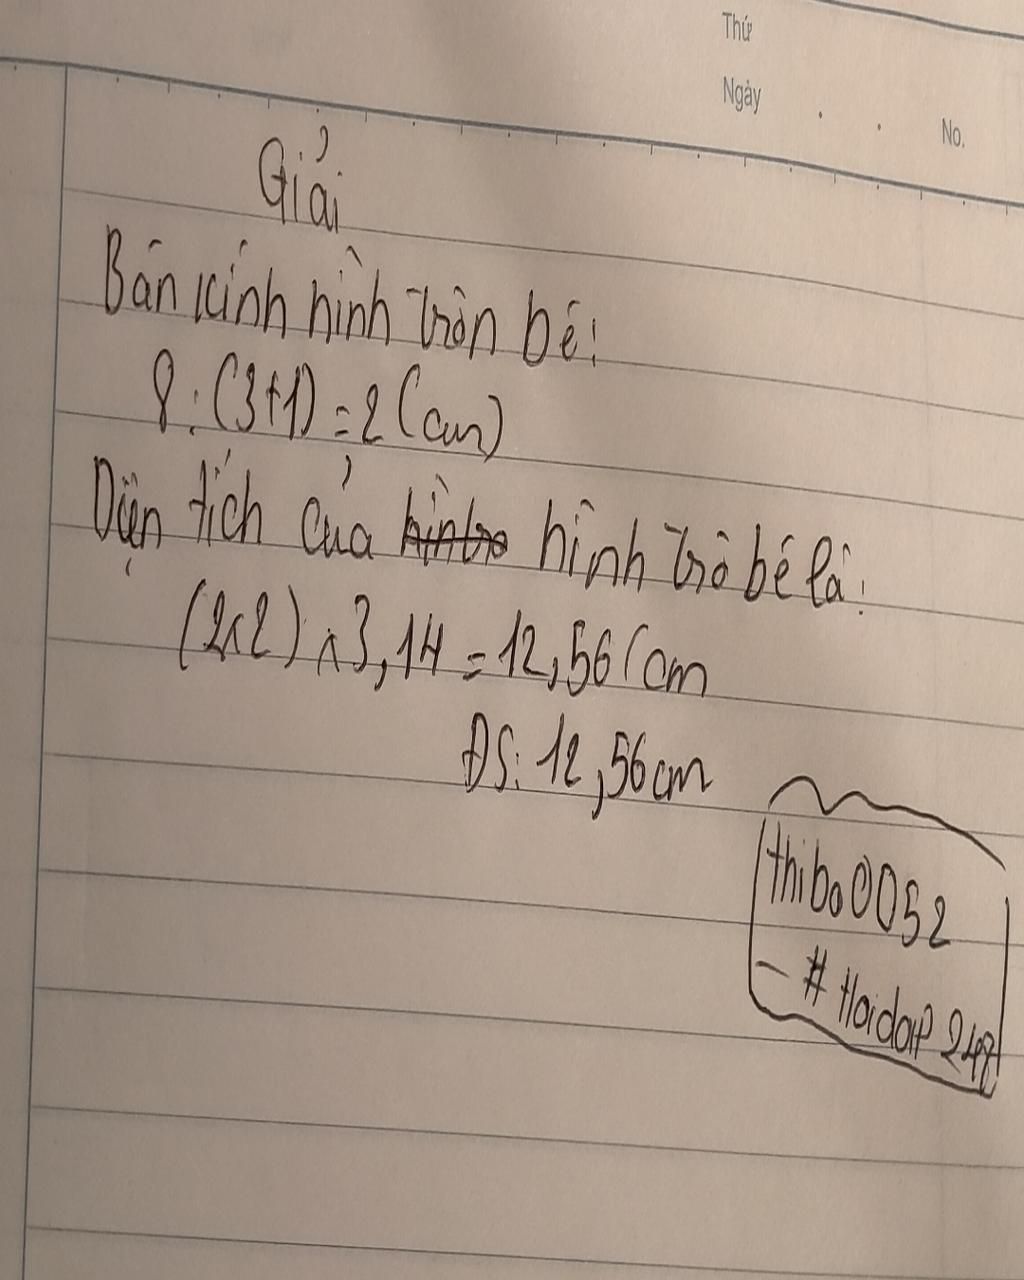 Thứ
Ngày . . No.
Giải
Bán kính hình tròn bé:
8 : (3+1) = 2 (cm)
Diện tích của hình trò bé là:
(2x2) x 3,14 = 12,56 (cm
ĐS: 12,56 cm
thibo0052
- # Hoidap 247